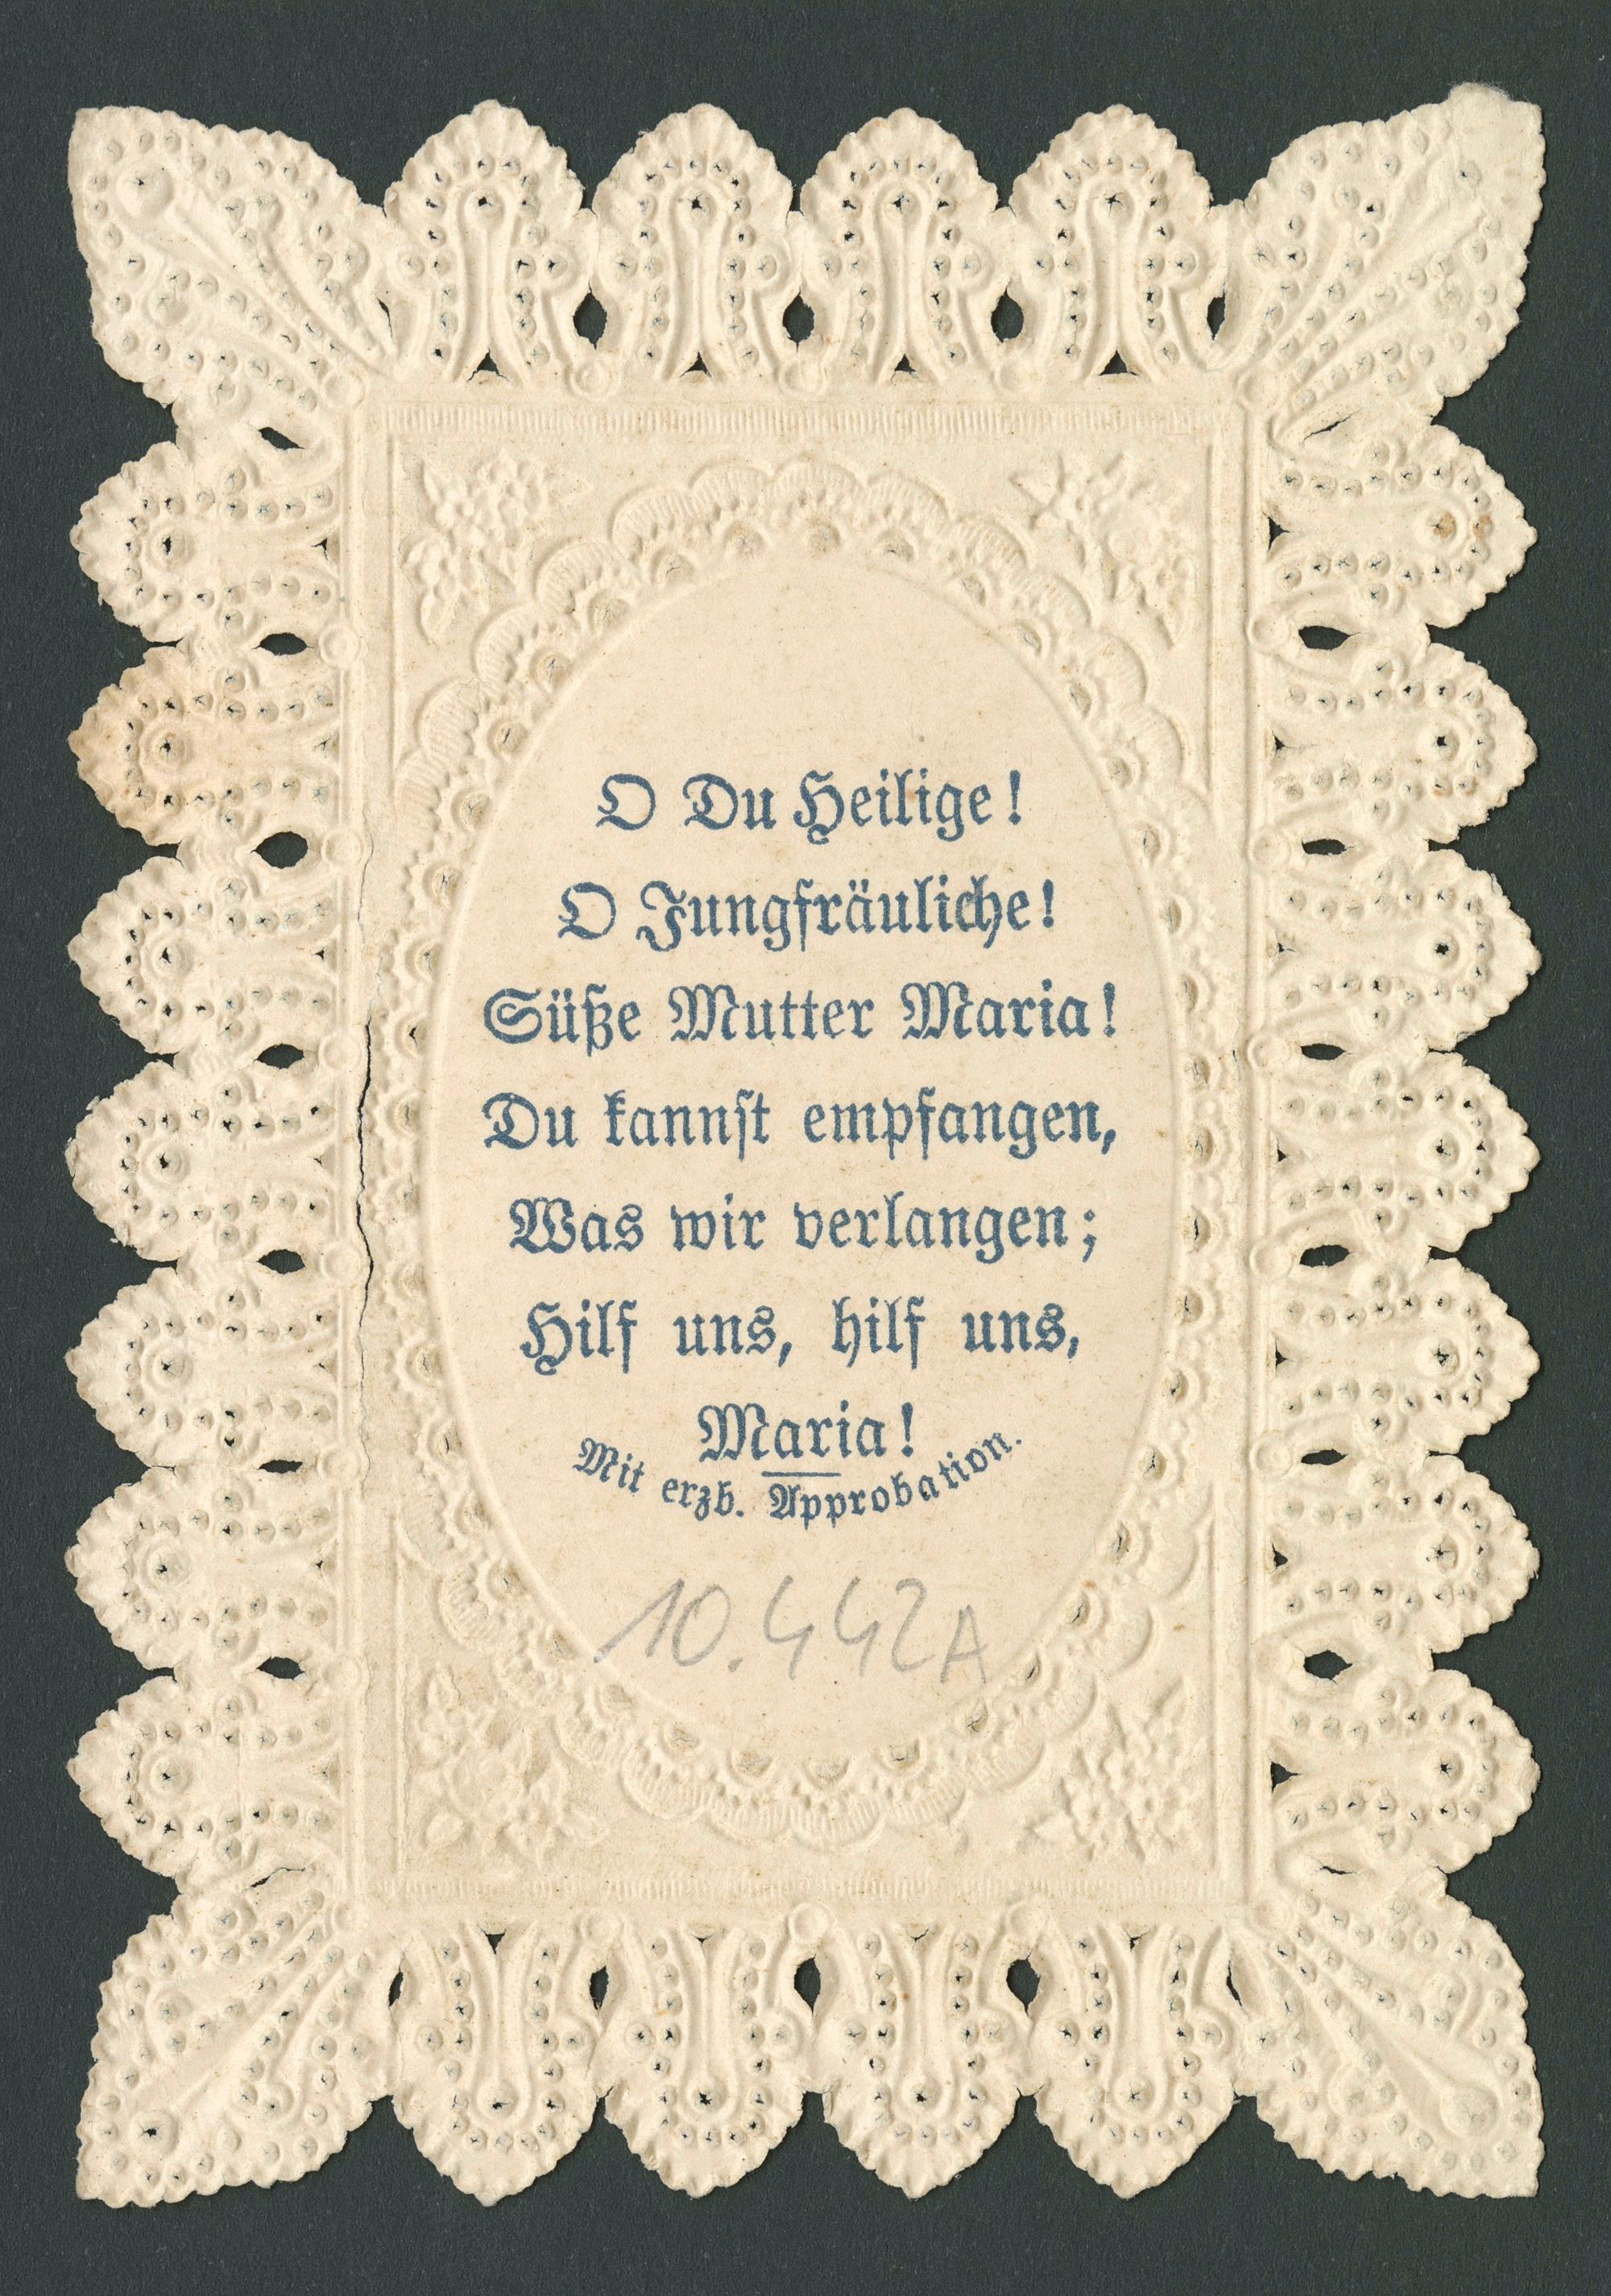 O Du Heilige!
O Jungfräuliche!
Süße Mutter Maria!
Du kannst empfangen,
Was wir verlangen;
Hilf uns, hilf uns,
Maria!
Mit erzb. Approbation.
10.442A